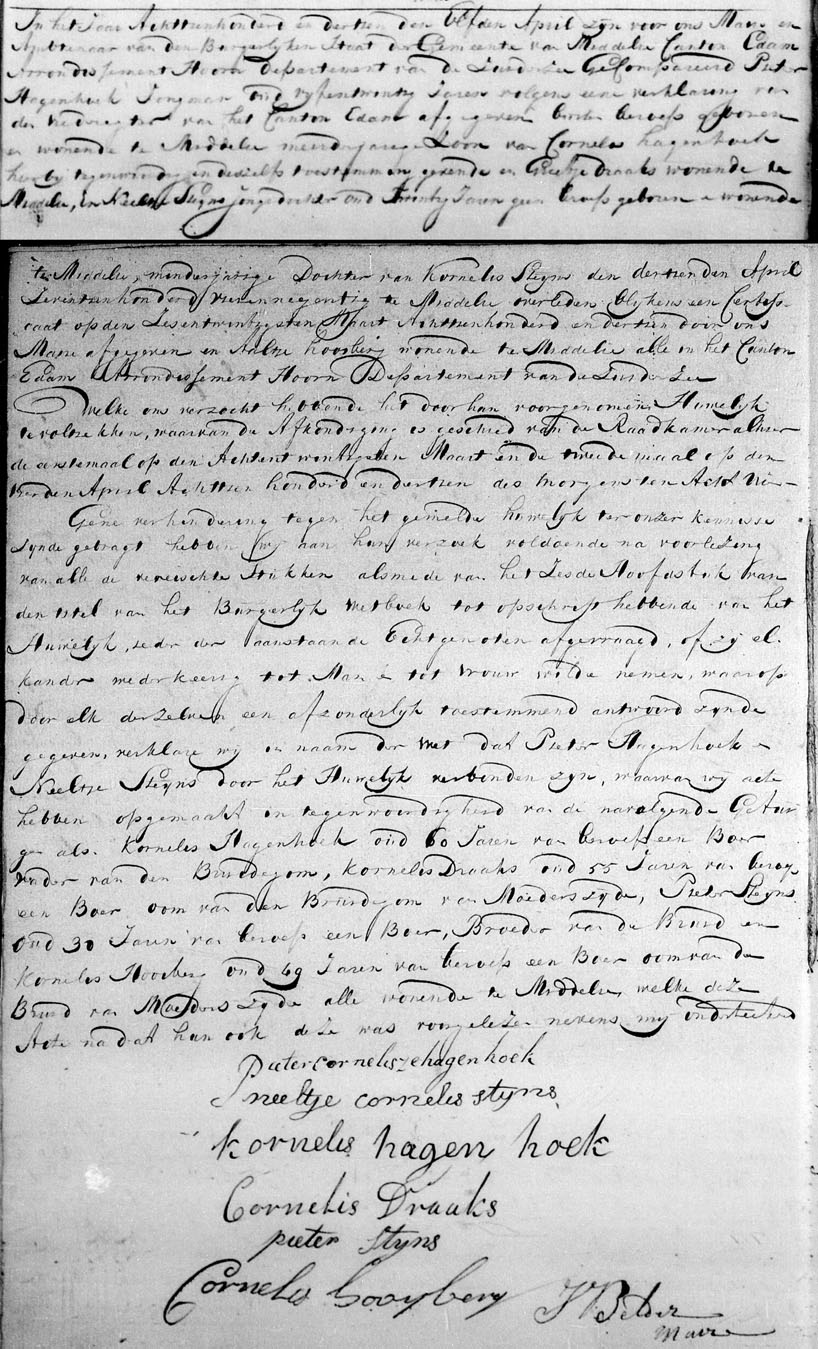 In het Jaar Achttienhonderd en dertien den Elfden April zyn voor ons Maire en
Ambtenaar van den Burgerlyken Staat der Gemeente van Middelie Canton Edam
Arrondissement Hoorn Departement van de Zuiderzee GeCompareerd Pieter
Hagenhoek Jongman oud vyfentwintig Jaren volgens eene verklaring van
de vrederegter van het Canton Edam afgegeven boeren beroep geboren
en wonende te Middelie meerderjarige Zoon van Cornelis hagenhoek
hier by tegenwoordig en deszelfs toestemming gevende en Grietje Draaks wonende te
Middelie, En Neeltje Steyns jonge dochter oud Twintig Jaren geen beroep geboren en wonende
te Middelie, minderjarige Dochter van Kornelis Steyns den dertienden April
Zeventienhonderd vierennegentig te Middelie overleden blykens een Certifi-
caat op den Zesentwintigsten Maart Achttienhonderd en dertien door ons
Maire afgegeven en Aaltje hooyberg wonende te Middelie alle in het Canton
Edam Arrondissement Hoorn Departement van de Zuider Zee
Welke ons verzocht hebbende het door hun voorgenomen Huwelyk
te voltrekken, waarvan de Afkondiging is geschied van de Raadkamer alhier
de eerstemaal op den Achtentwintigsten Maart en de tweede maal op den
vierden April Achttien honderd en dertien des morgens ten Acht Uren
Gene verhindering tegen het gemelde huwelyk ter onzer kennisse
zynde gebragt hebben wy aan hun verzoek voldoende na voorlezing
van alle de vereischte Stukken alsmede van het Zesde Hoofdstuk van
den titel van het Burgerlyk Wetboek tot opschrift hebbende van het
Huwelyk, ieder der aanstaande Echtgenoten afgevraagd, of zy el-
kander wederkeerig tot Man en tot Vrouw wilde nemen, waarop
door elk derzelven een afzonderlyk toestemmend antwoord zynde
gegeven, verklare wy in naam der Wet dat Pieter Hagenhoek en
Neeltje Steyns door het Huwelyk verbonden zyn, waarvan wy acte
hebben opgemaakt in tegenwoordigheid van de navolgende Getui
gen als. Kornelis Hagenhoek oud 60 Jaren van beroep een Boer
vader van den Bruidegom, Kornelis Draaks oud 55 Jaren van beroep
een Boer oom van den Bruidegom van Moeders zyde, Pieter Steyns
oud 30 Jaren van beroep een Boer, Broeder van de Bruid en
Kornelis Hooiberg oud 69 Jaren van beroep een Boer oom van de
Bruid van Moeders zyde alle wonende te Middelie, welke deze
Acte na dat hun ook deze was voorgelezen nevens my ondertekend
Pieter cornelisze hagenhoek
neeltje cornelis styns
kornelis hagen hoek
Cornelis Draaks
pieter Styns
Cornelis hooyberg
Maire